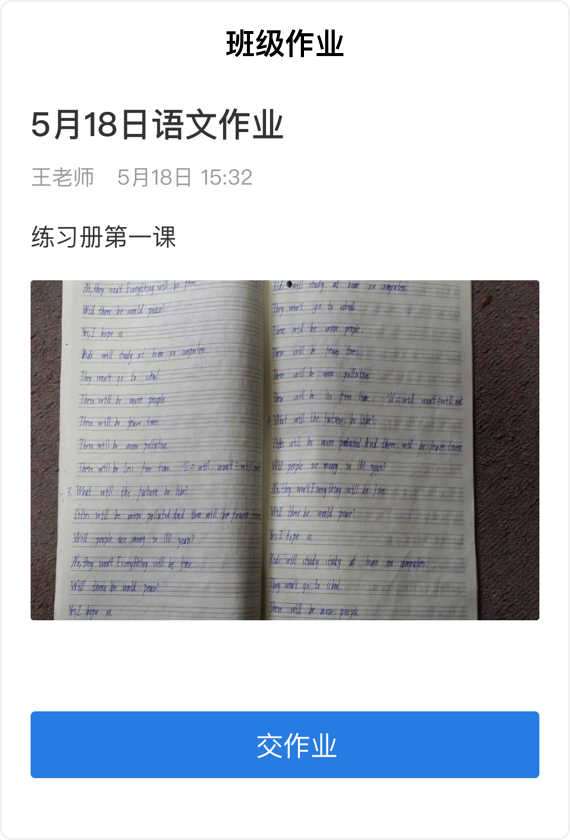 班级作业
5月18日语文作业
王老师 5月18日 15:32
练习册第一课
No, they won't Everything will be free.
Will there be world peace?
Yes, I hope so.
Kids will study at home on computers.
They won't go to school.
There will be more people.
There will be fewer trees.
There will be more pollution.
There will be less free time. 'll = will won't = will not
3. What will the future be like?
Cities will be more polluted. And there will be fewer trees
Will people use money in 100 years?
No, they won't Everything will be free.
Will there be world peace?
Yes, I hope so.
Kids will study at home on computers.
They won't go to school.
There will be more people.
There will be fewer trees.
There will be more pollution.
There will be less free time. 'll = will won't = will not
4. What will the future be like?
Cities will be more polluted. And there will be fewer trees
Will people use money in 100 years?
No, they won't Everything will be free.
Will there be world peace?
Yes, I hope so.
Kids will study study at home on computers.
They won't go to school.
There will be more people.
交作业